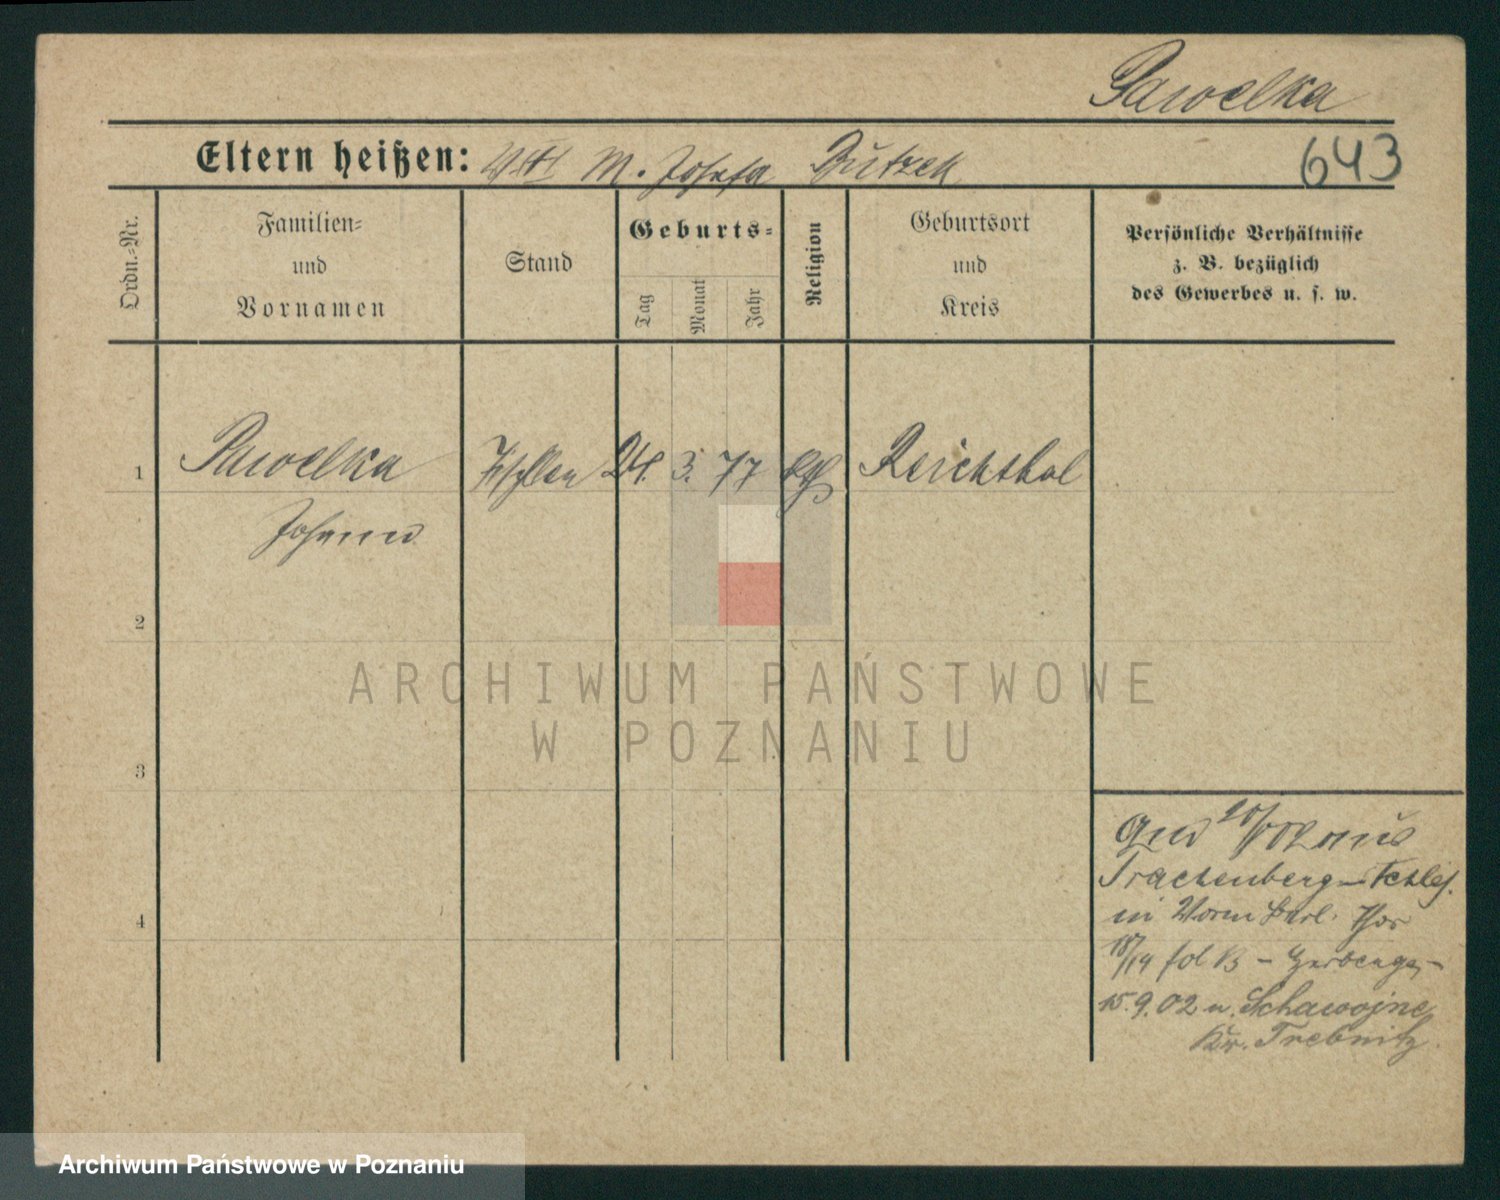 Pawelka
Eltern heißen: M. Josefa Butzek
643
Ordn.-Nr.
Familien-
und
Vornamen
Stand
Geburts-
Tag
Monat
Jahr
Religion
Geburtsort
und
Kreis
Persönliche Verhältnisse
z. B. bezüglich
des Gewerbes u. s. w.
1 Pawelka 24. 3. 77 kth Reichthal
Johann
2
3
4
aus
Trachenberg – Schles.
in
fol B –
15.9.02 n. Schawoyne
Kr. Trebnitz.
ARCHIWUM PAŃSTWOWE
W POZNANIU
Archiwum Państwowe w Poznaniu